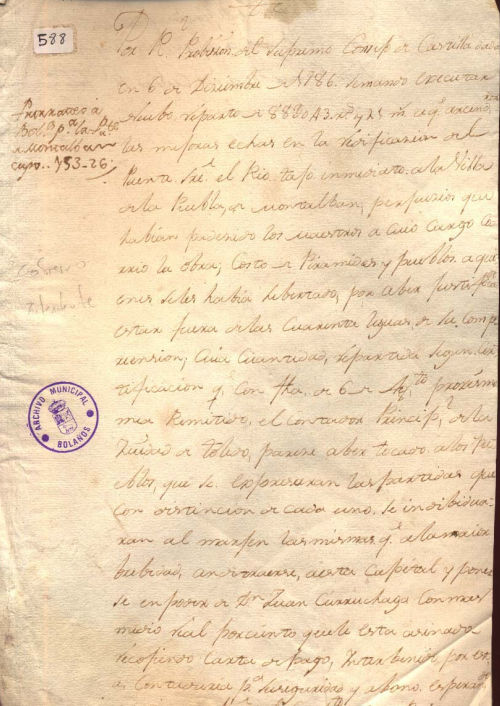 588
Por Rl Probision del Supremo Consejo de Castilla dada
en 6 de Diziembre de 1786. se mando executar
Nuebo reparto de 888043 rs y 25 m. a q.e
las mejoras echas en la redificacion del
Puente sre. el Rio tajo inmediato a la Villa
de la Puebla de Montalban, perjuicios que
habian padecido los Maestros a cuio cargo co
rrio la obra; Costo de Piramides y pueblos a qui
enes se les habia libertado, por aber justificado
estar fuera de las Cuarenta leguas de su comp
rension; Cuia Cuantidad, repartida segun
tificacion q. con fha. de 6 de proximo
me a Remitido, el contador Princip.l de la
Ziudad de Toledo, parece aber tocado a los Pue
blos, que se expresaran las partidas que
con distincion de cada uno, se indibidua
ran al marjen las mismas q.e a la maior
brebedad, an de traerse, a esta Capital y poner
se en poder de Dn. Juan Curruchaga con mas
medio real por ciento que le esta asinado
recojiendo Carta de pago, Interbenida por est
a Contaduria p.a su seguridad y abono. esperando
Prorrateo a
Bol.s p.a la P.te
de Montalban
cupo.. 753-26
ARCHIVO MUNICIPAL
BOLAÑOS